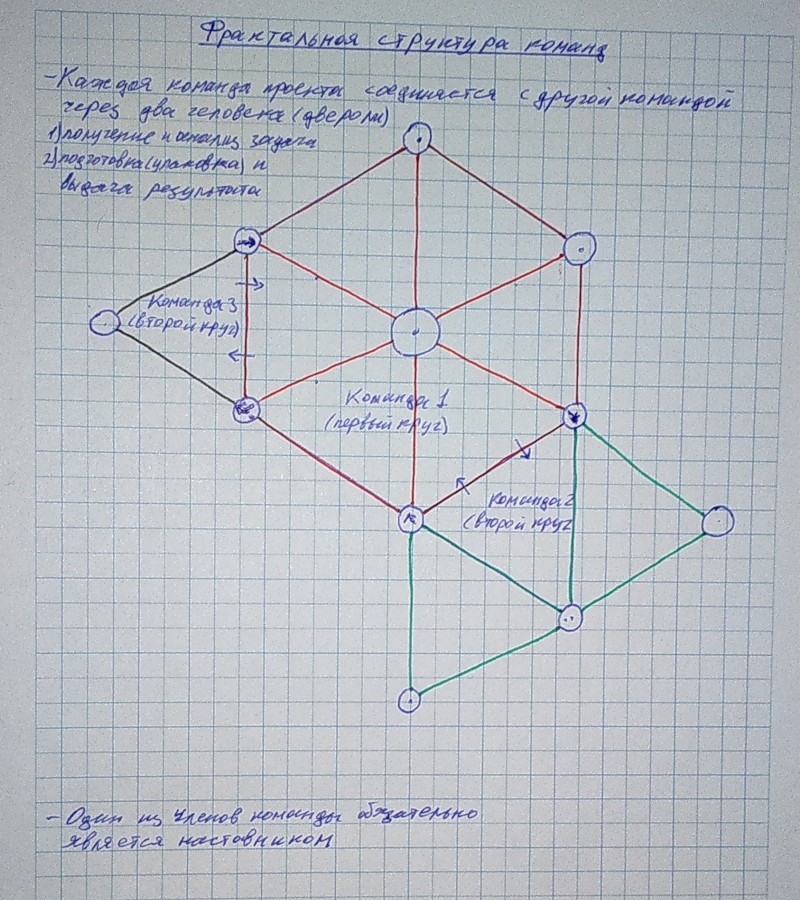 Фрактальная структура команд
- Каждая команда проекта соединяется с другой командой
через два человека (двероли)
1) получение и анализ задача
2) подготовка (упаковка) и
выдача результата
Команда 3
(второй круг)
Команда 1
(первый круг)
Команда 2
(второй круг
- Один из членов команды обязательно
является наставником